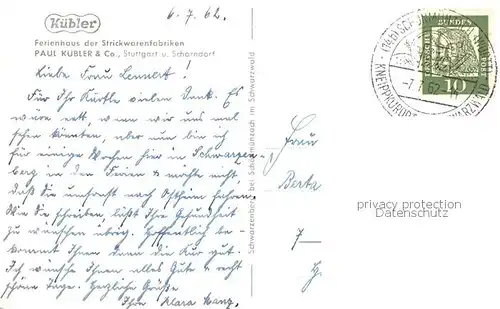 6.7.62.
Kübler
Ferienhaus der Strickwarenfabriken
PAUL KÜBLER & Co., Stuttgart u. Schorndorf
Liebe Frau Lennert!
Für Ihr Kärtle vielen Dank. Es
wäre nett, wenn wir uns mal
sehen könnten, aber nun bin ich
für einige Wochen hier in Schwarzen-
berg in den Ferien & möchte nicht
daß Sie umsonst nach Ostheim fahren.
Wie Sie schreiben, läßt Ihre Gesundheit
zu wünschen übrig. Hoffentlich be-
kommt Ihnen dann die Kur gut.
Ich wünsche Ihnen alles Gute & recht
schöne Tage. Herzliche Grüße
Ihre Klara
Schwarzenberg bei Schönmünzach im Schwarzwald
DEUTSCHE BUNDESPOST
10
(14b) SCHÖNMÜNZACH
-7.7.62
KNEIPPKURORT
Frau
Berta
7
privacy protection
Datenschutz